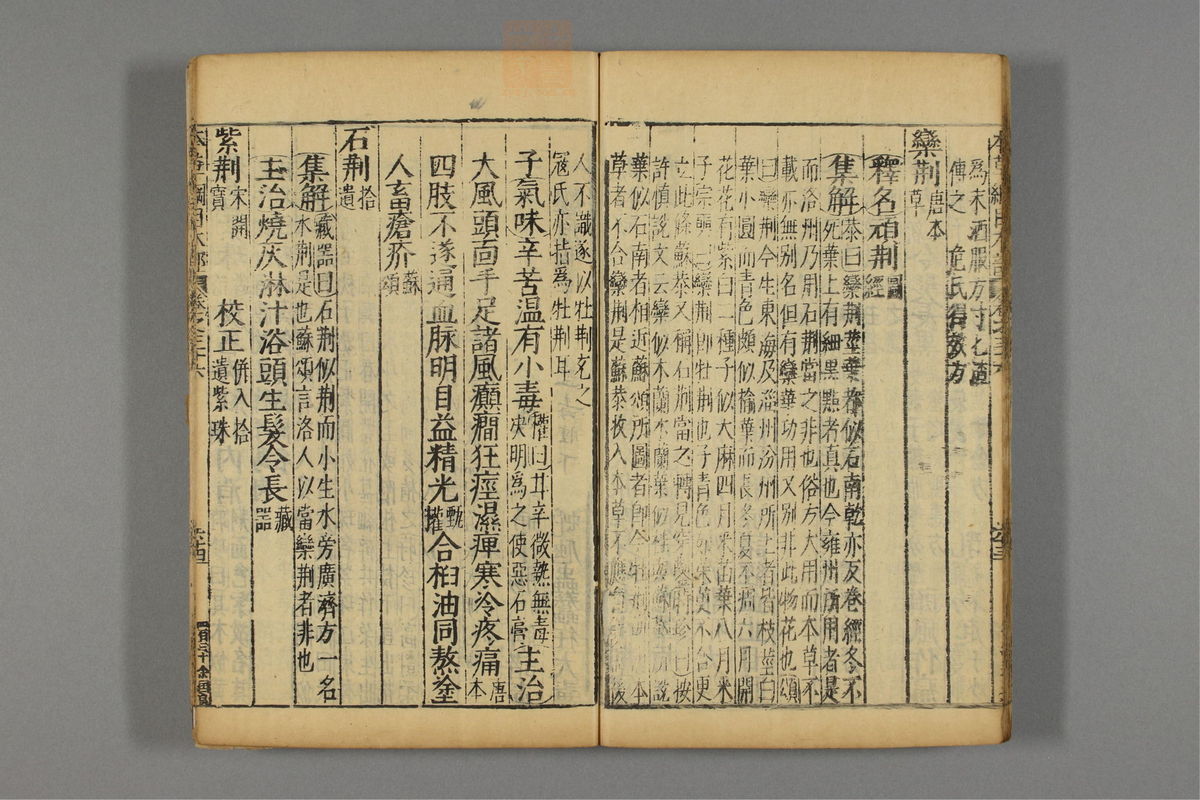 為末酒服方寸匕直
傅之
欒荆唐本
草
釋名頑荆圖
經
集解恭曰欒荆莖葉都似石南乾亦反卷經冬不
死葉上有細黑點者真也今雍州所用者是
而洛州乃用石荆當之非也俗方大用而本草不
載亦無别名但有欒華功用又别非此物花也頌
曰欒荆今生東海及淄州汾州所上者皆枝莖白
葉小圓而青色頗似榆葉而長冬夏不枯六月開
花花有紫白二種子似大麻四月采苗葉八月采
子宗奭曰欒荆即牡荆也子青色如
立此條蘇恭又稱石荆當之轉見
許慎說文云欒似木蘭木蘭葉似桂
葉似石南者相近蘇頌所圖者即今
草者不合欒荆是蘇恭收入本草不應
人不識遂以牡荆充之
寇氏亦指為牡荆耳
子氣味辛苦溫有小毒權曰甘辛微熱無毒
决明為之使惡石膏主治
大風頭面手足諸風癲癇狂痙濕痺寒冷疼痛唐
本
四肢不遂通血脉明目益精光甄
權合桕油同熬塗
人畜瘡疥蘇
頌
石荆拾
遺
集解藏器曰石荆似荆而小生水旁廣濟方一名
水荆是也蘇頌言洛人以當欒荆者非也
主治燒灰淋汁浴頭生髮令長藏
器
紫荆宋開
寶 校正併入拾
遺紫珠